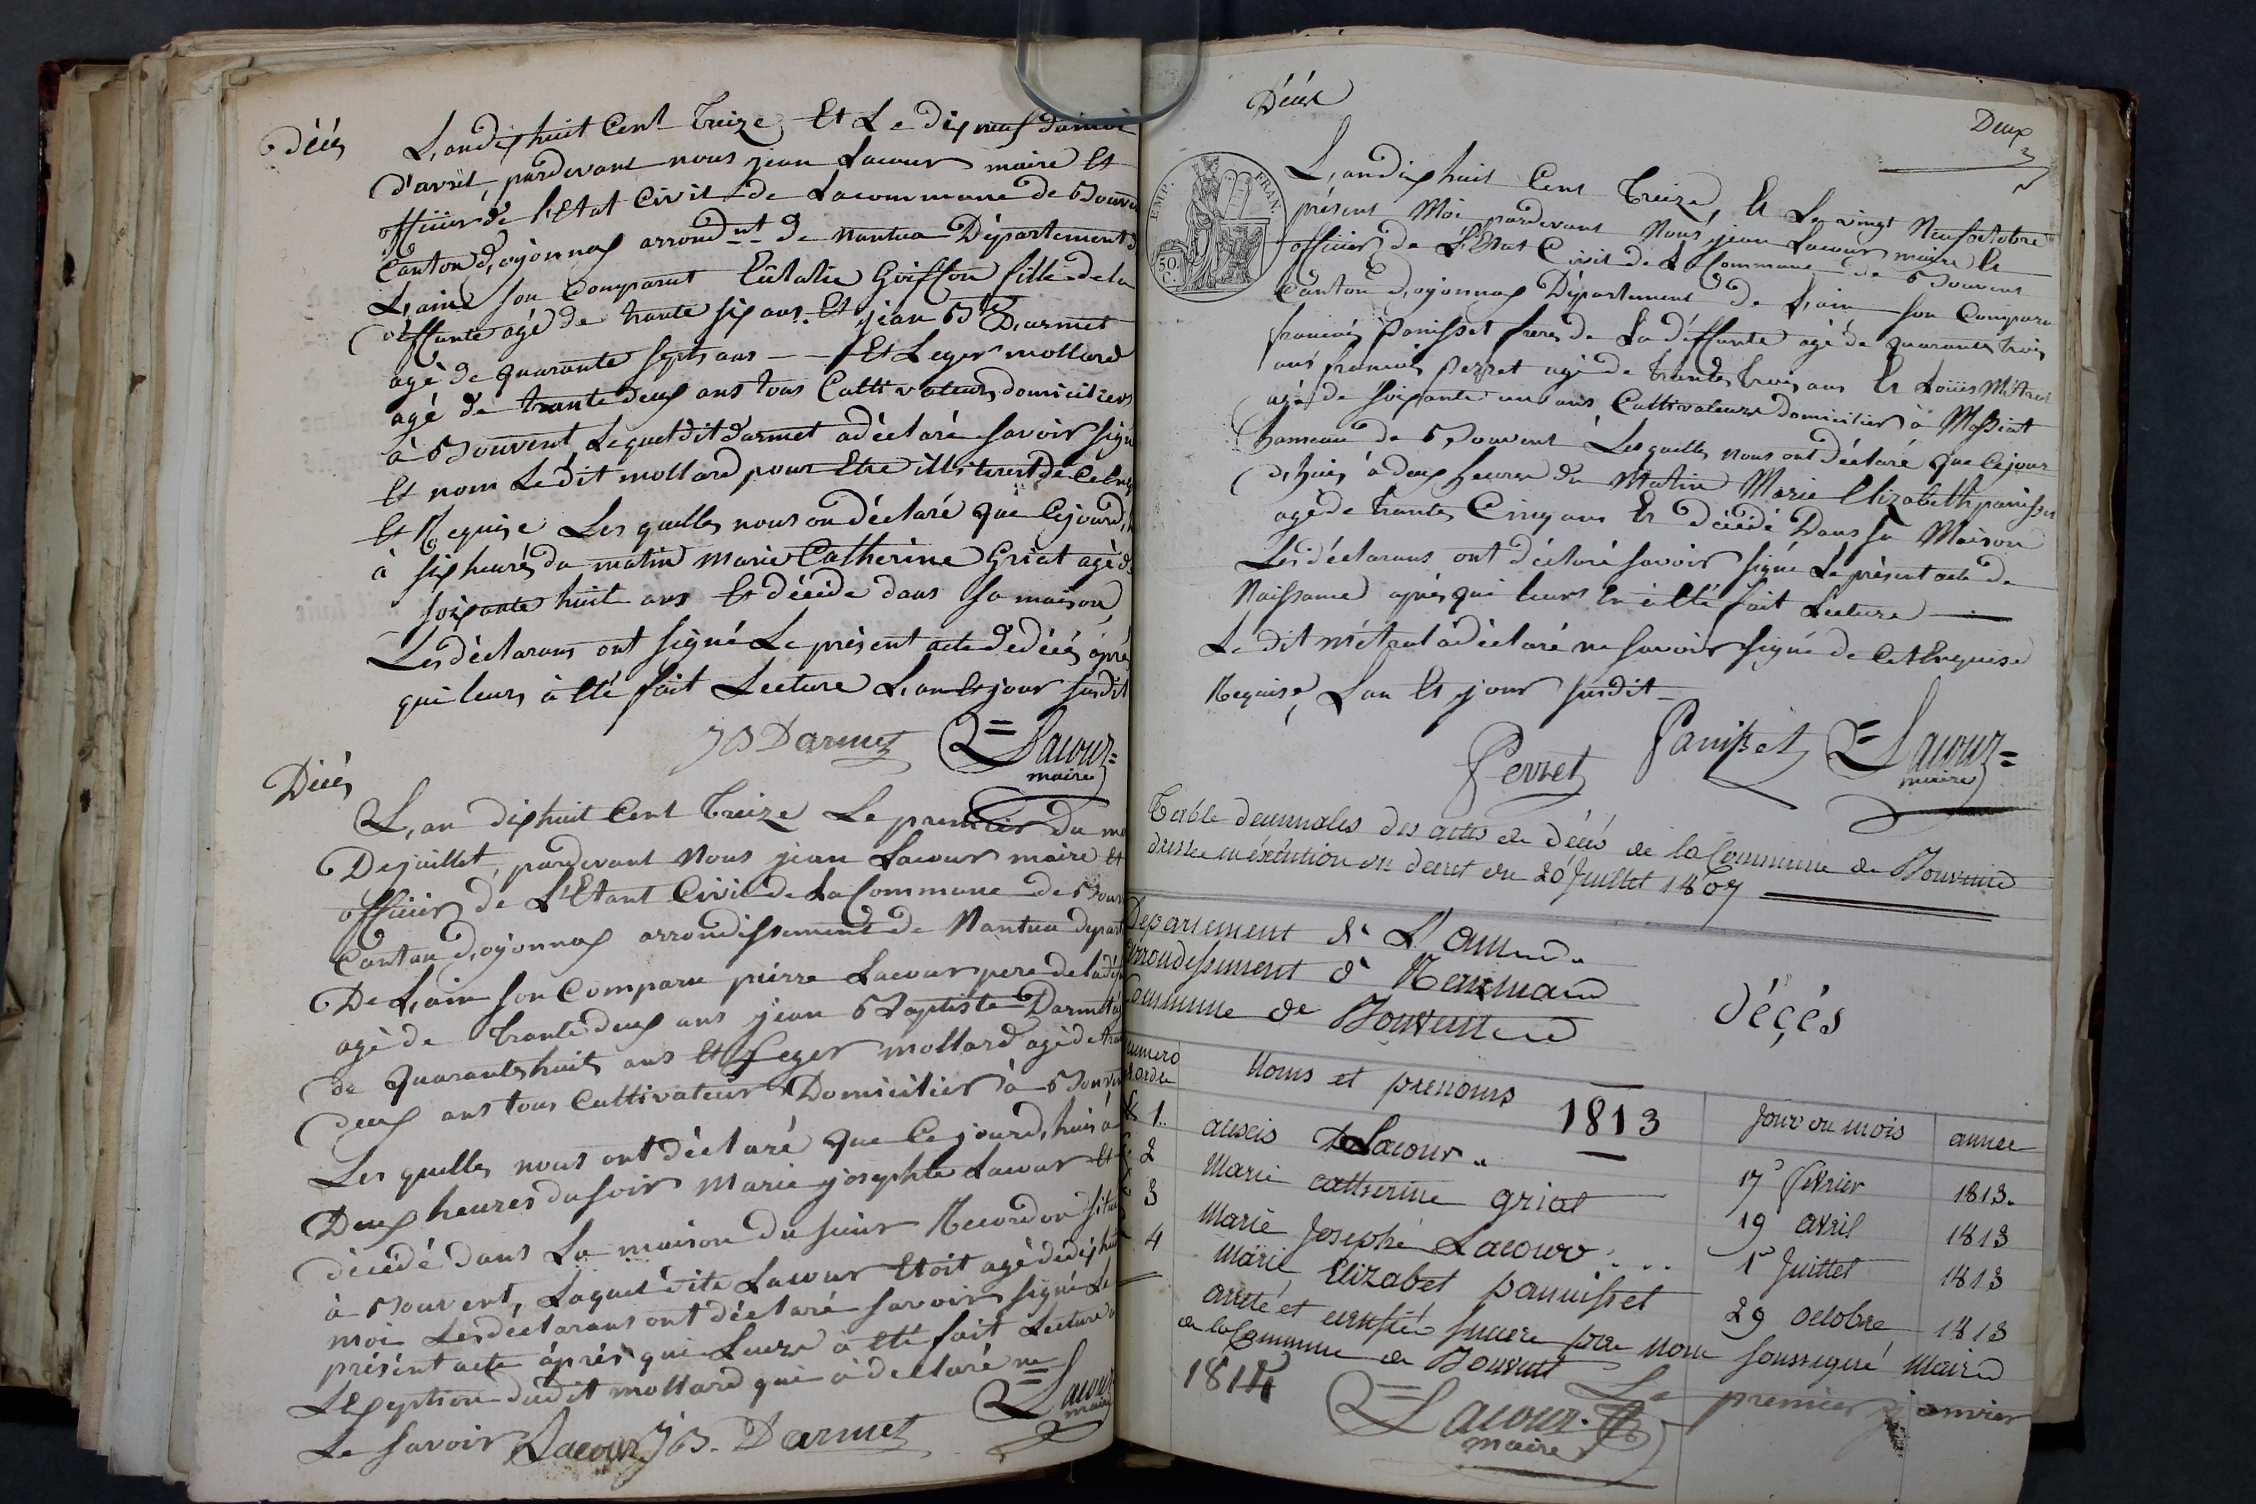 Décés
L'an dix huit Cent treize, Et Le dix neuf du mois
d'avril, pardevant nous jean Lacour maire Et
officier de l'Etat Civil de Lacommune de Bouve
Canton d'oyonnax arrond.nt de nantua Département d
L'ain son Comparut Eulalie Goiffon fille de la
déffunte agé de trante six ans Et jean Bte D'armet
agé de quarante septs ans - Et Leger mollard
agé de trante deux ans tous Cultivateurs domiciliers
à Bouvent, Lequel dit Darmet adéclaré savoir signé
Et nom Le dit mollard pour Etre illiterest de ce Enq
Et Requise Les quelles nous on déclaré que Cejourd,
à six heures du matin marie Catherine Griat agé d
soixante huit ans Et décédé dans sa maison,
Les déclarans ont signé Le présent acte de décés après
qui leurs à Eté fait Lecture L'an Et jour susdit
JB Darmet Lacour maire
Décés
L'an dix huit Cent treize Le premier du mo
De juillet, pardevant Nous jean Lacour maire Et
officier de L'Etant Civil de La Commune de Bouv
Canton d'oyonnax arrondissement de Nantua depart
De L'ain son Comparu pierre Lacour pere de la déf
agé de trante deux ans jean Baptiste Darmet ag
de quarante huit ans Et Leger mollard agé de tran
deux ans tous Cultivateur Domicilier à Bouven
Les quelles nous ont déclaré que Ce jourd'huis à
Deux heures du soir Marie josephte Lacour Et
décédé dans La maison du sieur Recordon situé
à Bouvent, Laquel dite Lacour Etoit agé de dix huit
moi Les déclarans ont déclaré savoir signé Le
présent acte après qui Leurs a Eté fait Lecture
L'Exception dudit mollard qui à déclaré ne
Le savoir Lacour JB. Darmet Lacour maire
Décés
Deux
EMP. FRAN.
50. C.
L'an dix huit Cent treize, Et Le vingt Neuf octobre
présent Moi pardevant Nous jean Lacour maire Et
officier de L'Etat Civil de La Commune de Bouvent
Canton d'oyonnax Département de L'ain son Comparu
francois Panisset frere de La déffunte agé de quarante trois
ans francois Perret agé de trante trois ans Et Loüis Métral
agé de soixante un ans Cultivateurs domicilier à Massiat
hameau de Bouvent Lesquelles nous ont déclaré que Cejour
d'huis à deux heures du Matin Marie Elizabeth panisset
agé de trante Cinq ans Et décédé Dans sa Maison
Les déclarans ont déclaré savoir signé Le présent acte de
Naissance après qui leurs en à Eté fait Lecture
Le dit métral à déclaré ne savoir signé de Ce Enquise
Requise, L'an Et jour susdit
Perret Panisset Lacour maire
Table decennales des actes de décés de la Commune de Bouvent
dressée en éxécution du decret du 20 Juillet 1807
Departement de L'ain
arrondissement de Nantua
Commune de Bouvent
Décés
numero d'ordre Noms et prenoms 1813 Jour du mois annee
1. alexis Lacour 17 fevrier 1813.
2 Marie catherine griat 19 avril 1813
3 Marie Josephe Lacour 1er Juillet 1813
4 Marie Elizabet pannisset 29 octobre 1813
arreté et certifié sincere par Nous soussigné Maire
de la Commune de Bouvent Le premier janvier
1814
Lacour. maire